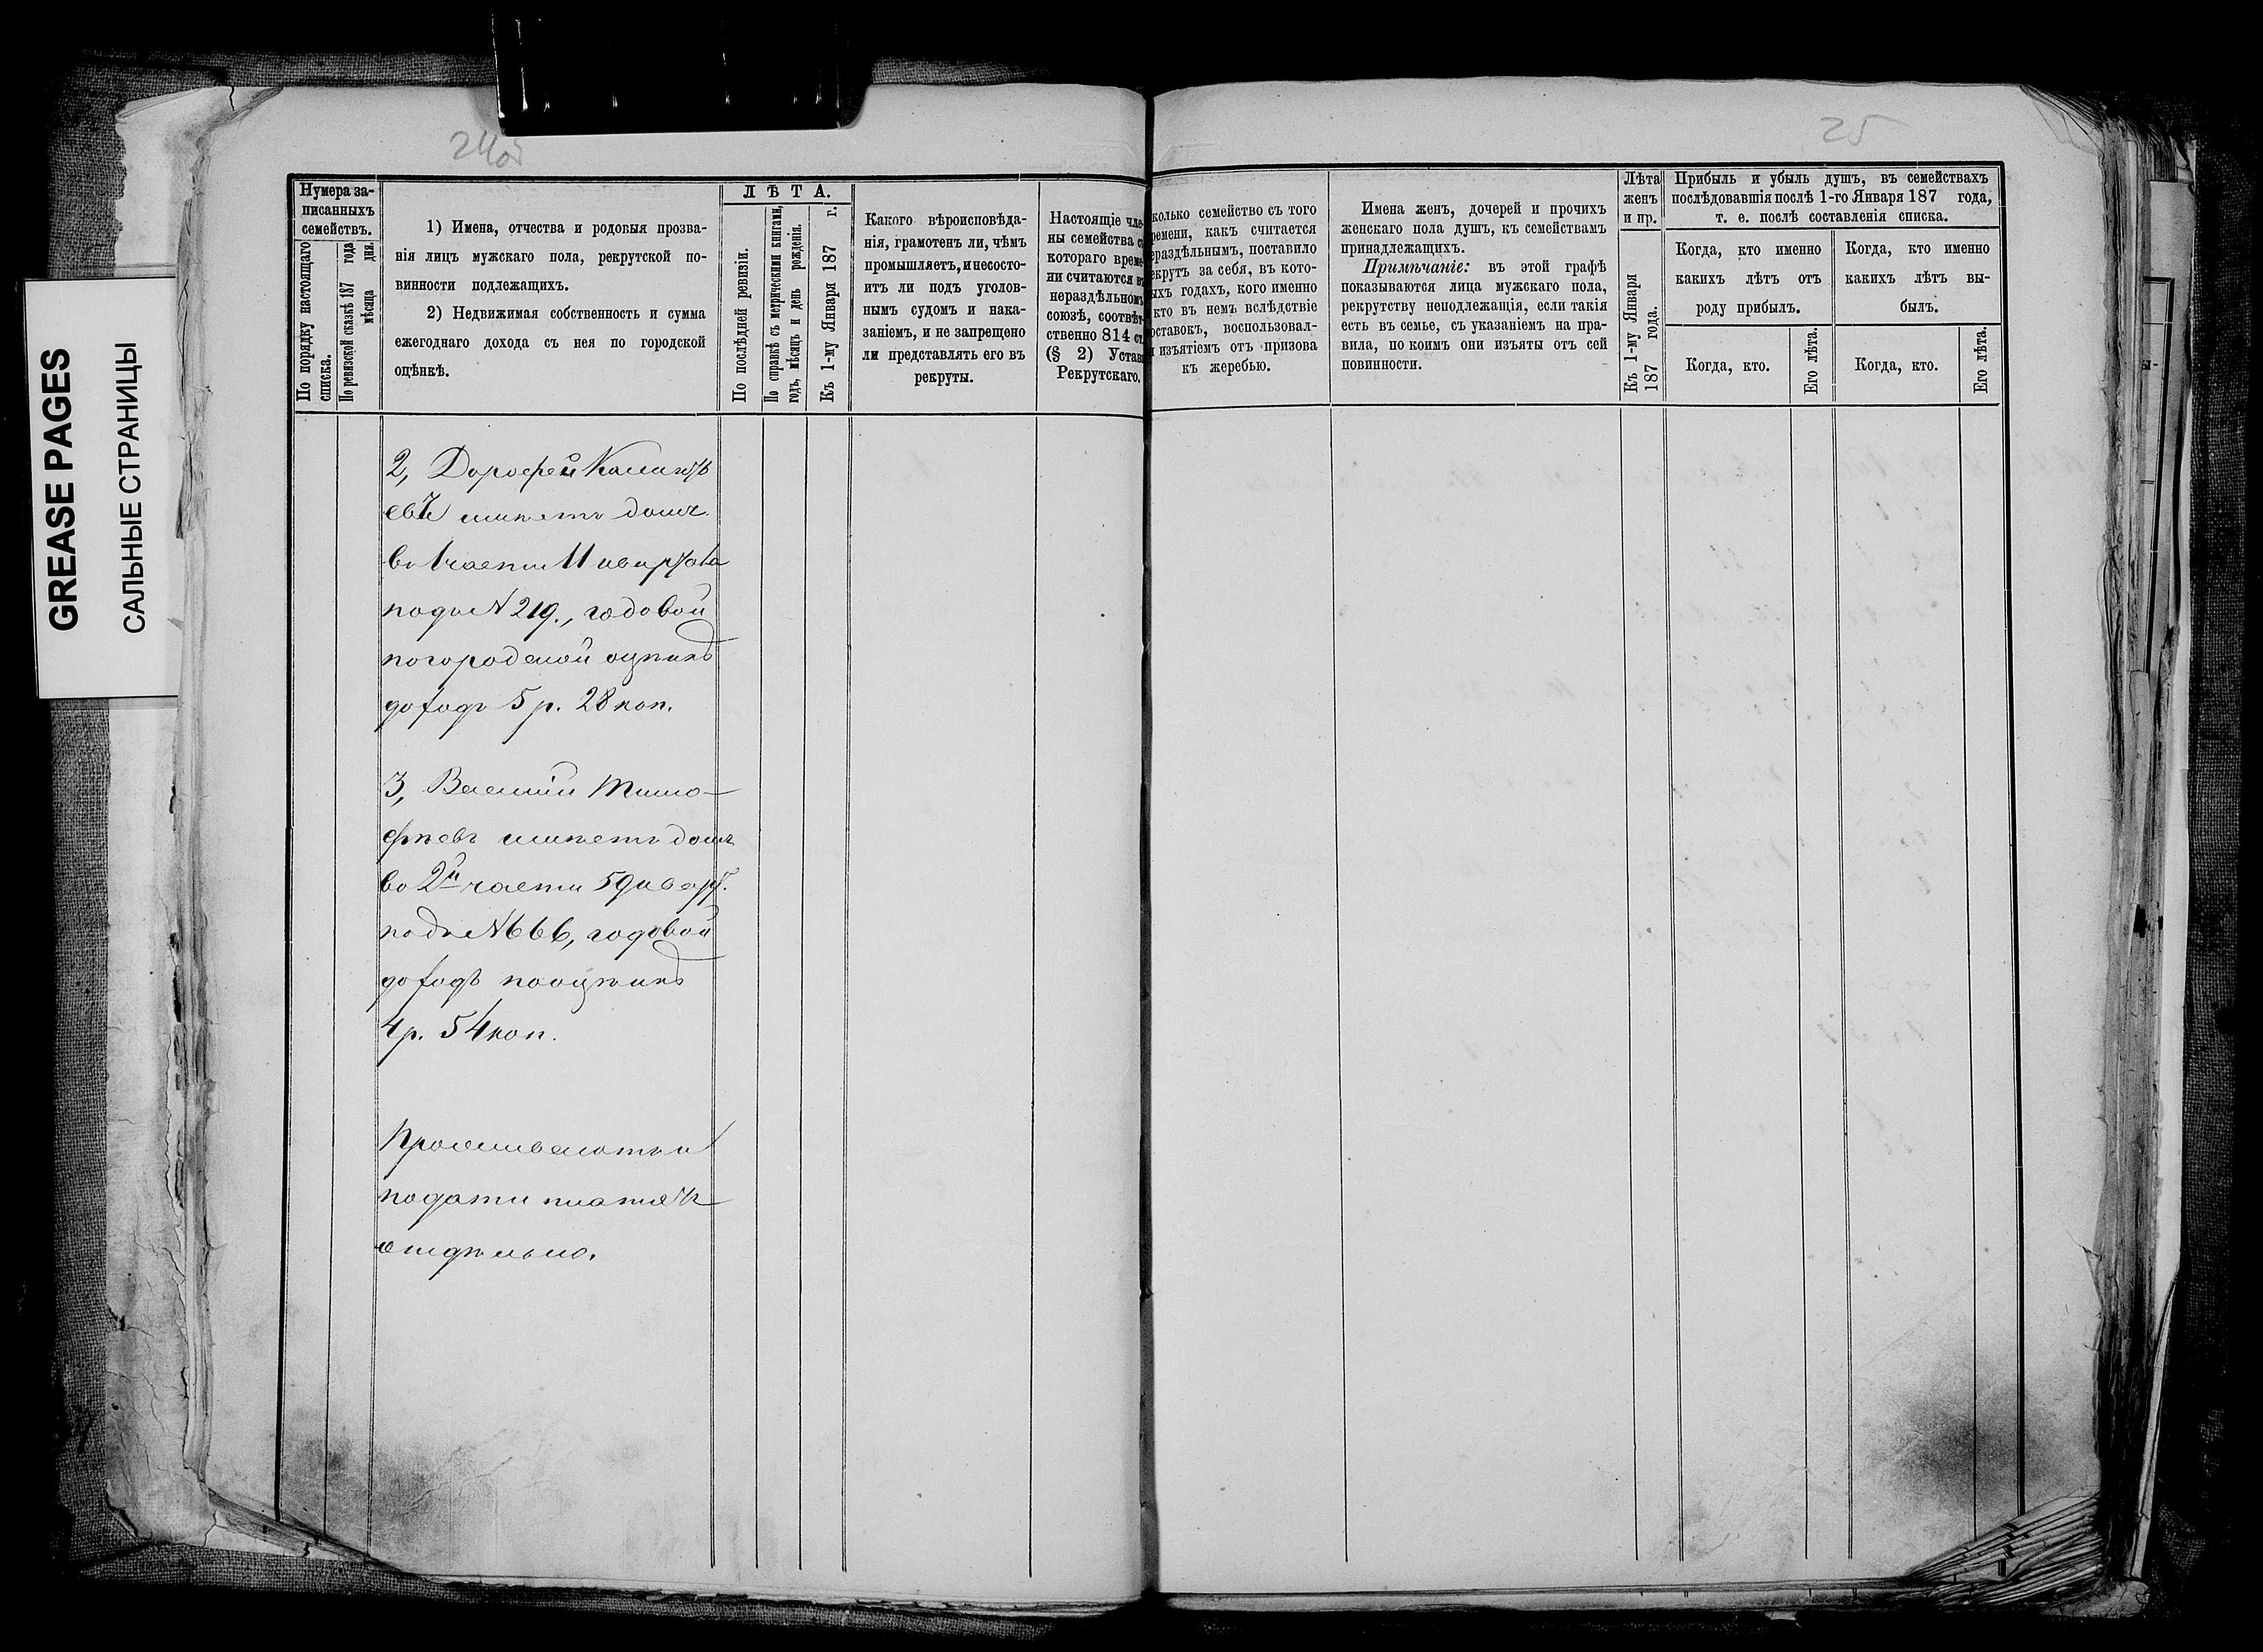 GREASE PAGES
САЛЬНЫЕ СТРАНИЦЫ
24об
25
Нумера за-
писанныхъ
семействъ.
По порядку настоящаго
списка.
По ревизской сказкѣ 187 года
мѣсяца дня.
1) Имена, отчества и родовыя прозва-
нія лицъ мужскаго пола, рекрутской по-
винности подлежащихъ.
2) Недвижимая собственность и сумма
ежегоднаго дохода съ нея по городской
оцѣнкѣ.
ЛѢТА.
По послѣдней ревизіи.
По справкѣ съ метрическими книгами,
годъ, мѣсяцъ и день рожденія.
Къ 1-му Января 187 г.
Какого вѣроисповѣда-
нія, грамотенъ ли, чѣмъ
промышляетъ, и несосто-
итъ ли подъ уголов-
нымъ судомъ и нака-
заніемъ, и не запрещено
ли представлять его въ
рекруты.
Настоящіе чле-
ны семейства с
котораго време-
ни считаются въ
нераздѣльномъ
союзѣ, соотвѣт-
ственно 814 ст.
(§ 2) Устава
Рекрутскаго.
колько семейство съ того
ремени, какъ считается
ераздѣльнымъ, поставило
екрутъ за себя, въ кото-
ыхъ годахъ, кого именно
кто въ немъ вслѣдствіе
оставокъ, воспользовал-
я изъятіемъ отъ призова
къ жеребью.
Имена женъ, дочерей и прочихъ
женскаго пола душъ, къ семействамъ
принадлежащихъ.
Примѣчаніе: въ этой графѣ
показываются лица мужскаго пола,
рекрутству неподлежащія, если такія
есть въ семье, съ указаніемъ на пра-
вила, по коимъ они изъяты отъ сей
повинности.
Лѣта
женъ
и пр.
Къ 1-му Января
187 года.
Прибыль и убыль душъ, въ семействахъ
послѣдовавшія послѣ 1-го Января 187 года,
т. е. послѣ составленія списка.
Когда, кто именно
какихъ лѣтъ отъ
роду прибылъ.
Когда, кто.
Его лѣта.
Когда, кто именно
какихъ лѣтъ вы-
былъ.
Когда, кто.
Его лѣта.
2, Дорофей
имѣетъ домъ
въ 1 части 11 квартала
подъ № 219., годовой
по городской оцѣнкѣ
доходъ 5 р. 28 коп.
3, Василій Тимо-
фѣевъ имѣетъ домъ
во 2й части 59 кварт.
подъ № 666, годовой
доходъ по оцѣнкѣ
4 р. 54 коп.
Проживаютъ и
подати платятъ
отдѣльно.